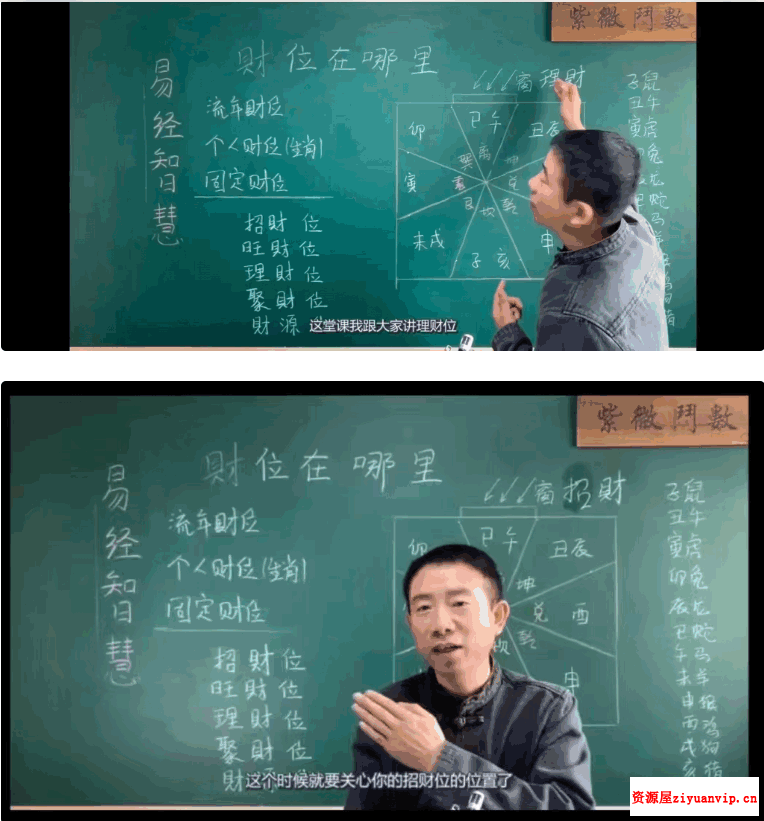 紫微鬥數
財位在哪里
易经知日慧
流年财位
个人财位(生肖)
固定财位
招財位
旺財位
理財位
聚財位
財源
窗理財
卯
巳午
丑辰
寅
未戌
子亥
申
离
兑
艮
坎
乾
子鼠
丑午
寅虎
兔
龙
蛇
马
羊
鸡
猪
这堂课我跟大家讲理财位
紫微鬥數
財位在哪里
易经知日慧
流年财位
个人财位(生肖)
固定财位
招財位
旺財位
理財位
聚財位
財源
窗招財
卯
巳午
丑辰
坤
兑
酉
乾
坎
申
子鼠
丑午
寅虎
卯兔
辰龙
巳蛇
午马
未羊
申猴
酉鸡
戌狗
亥猪
这个时候就要关心你的招财位的位置了
资源屋ziyuanvip.cn